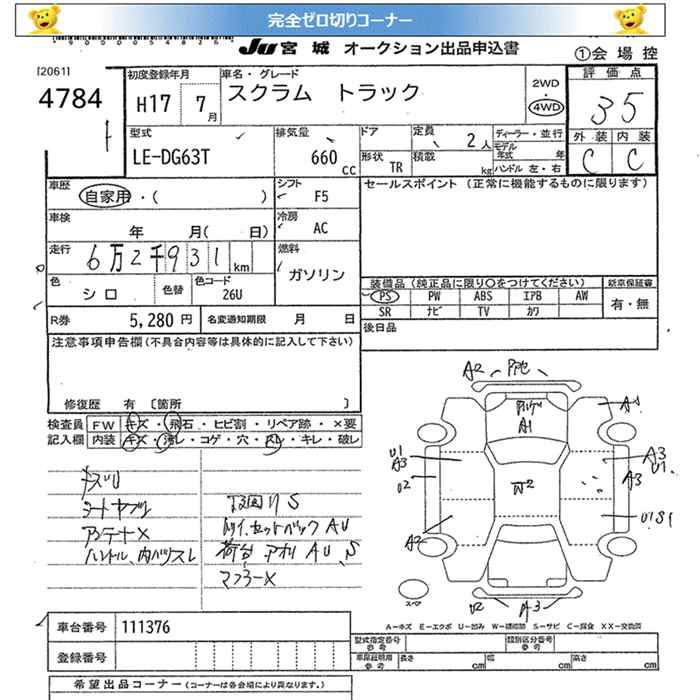 完全ゼロ切りコーナー
JU 宮城 オークション出品申込書
①会場控
[2061]
4784
初度登録年月
H17 7月
車名・グレード
スクラム トラック
2WD
・
4WD
評価点
3.5
外装 内装
C C
型式
LE-DG63T
排気量
660 cc
ドア
形状 TR
定員 2人
積載 kg
ディーラー・並行
モデル年式 年
ハンドル 左・右
車歴
自家用・( )
シフト
F5
セールスポイント (正常に機能するものに限ります)
車検
年 月( 日)
冷房
AC
走行
6万2千931km
燃料
ガソリン
色
シロ
色替
色コード
26U
装備品(純正品に限り○をつけてください)
新車保証書
PS PW ABS エアB AW
SR ナビ TV カワ
有・無
R券 5,280円
名変通知期限 月 日
後日品
注意事項申告欄(不具合内容等は具体的に記入して下さい)
修復歴 有 〔箇所 〕
検査員 FW キズ・飛石・ヒビ割・リペア跡・×要
記入欄 内装 キズ・汚レ・コゲ・穴・・キレ・破レ
アンテナ×
下回リS
マフラー×
A2
A1
A1
U1
A3
U2
W2
A3
U1
A3
U1S1
A2
U2 A3
スペア
A−キズ E−エクボ U−凹み W−補修跡 S−サビ C−腐食 XX−交換済
車台番号 111376
登録番号
型式指定番号
参考
類別区分番号
参考
車庫証明用
参考
長さ cm 幅 cm 高さ cm
希望出品コーナー(コーナーは各会場により異なります。)